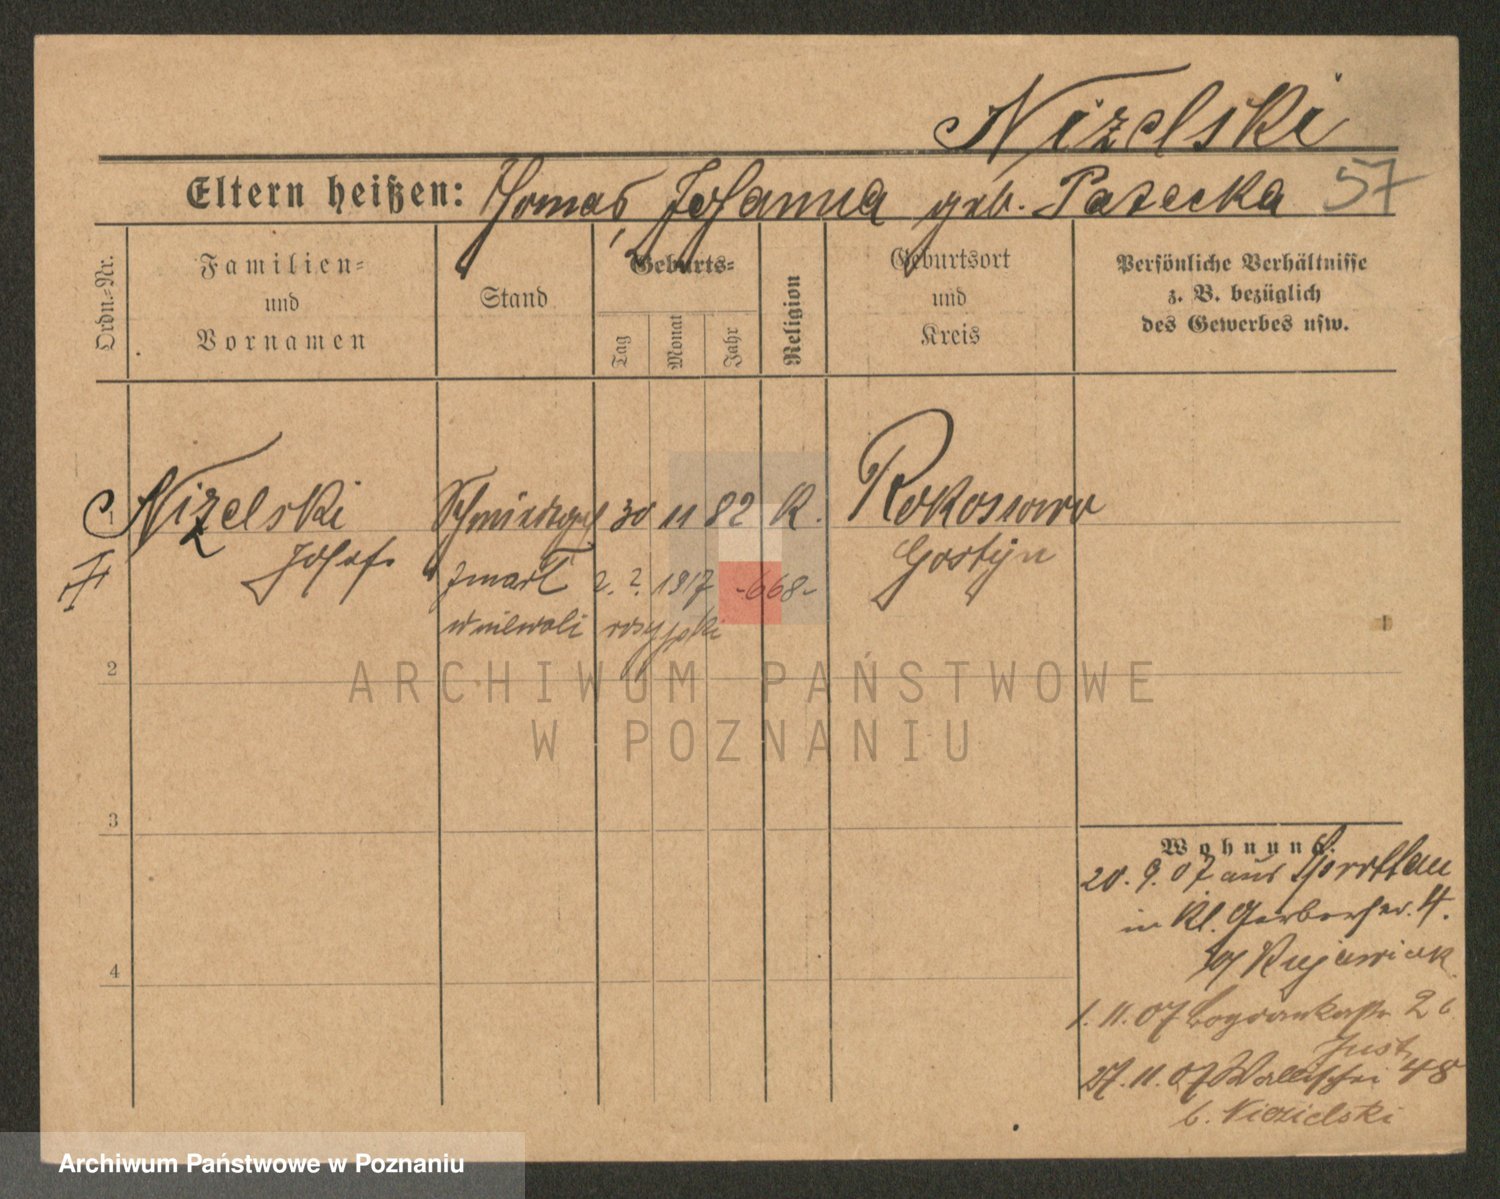 Nizelski
Eltern heißen: Thomas, Johanna geb. Patecka 57
Ordn.-Nr.
Familien-
und
Vornamen
Stand
Geburts-
Tag
Monat
Jahr
Religion
Geburtsort
und
Kreis
Persönliche Verhältnisse
z. B. bezüglich
des Gewerbes usw.
1 Nizelski Schmiedeges 30 11 82 K. Rokossowo
Josef Gostyn
zmarł 2. ?. 1917 -668-
w niewoli rosyjski
2
3
4
Wohnung.
20. 9. 07 aus Sprottau
in Kl. Gerberstr. 4.
bei Kujawiak
1. 11. 07 Bogdankastr 2b
Just
27. 11. 07 Wallischei 48
b. Niezielski
ARCHIWUM PAŃSTWOWE
W POZNANIU
Archiwum Państwowe w Poznaniu